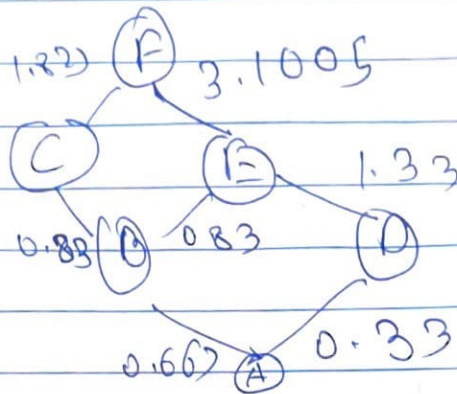 F
1.83 3.1005
C E 1.33
0.83 B 0.83 D
0.667 A 0.33